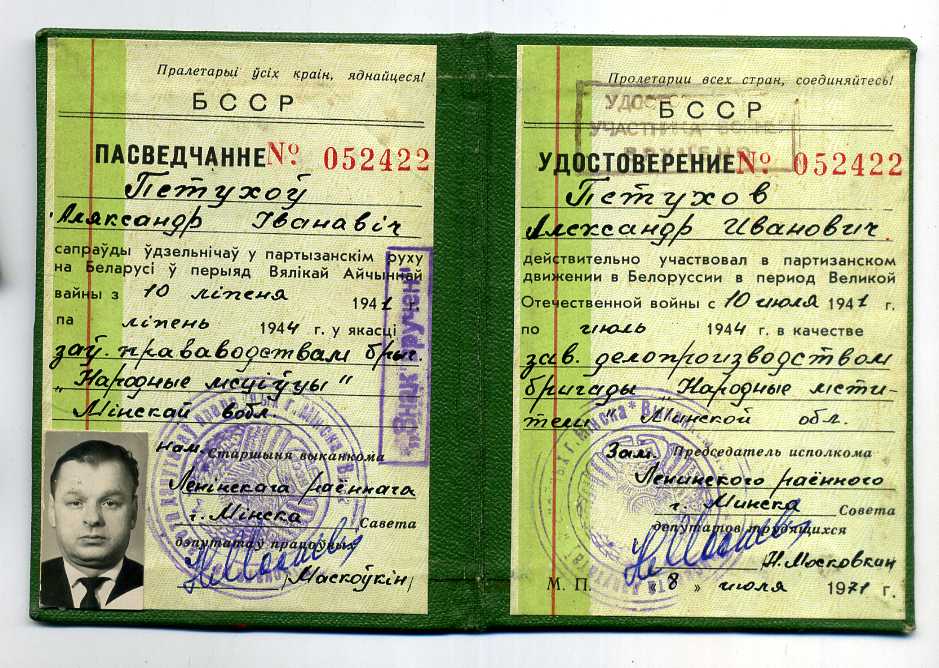 Пралетарыі ўсіх краін, яднайцеся!
БССР
ПАСВЕДЧАННЕ № 052422
Петухоў
Аляксандр Іванавіч
сапраўды ўдзельнічаў у партызанскім руху
на Беларусі ў перыяд Вялікай Айчыннай
вайны з 10 ліпеня 1941 г.
па ліпень 1944 г. у якасці
заў. правaводствам брыг.
"Народные мсціўцы"
Мінскай вобл.
"Знак вручен"
нам. Старшыня выканкома
Ленінскага раённага
г. Мінска Савета
дэпутатаў працоўных
Маскоўкін
Пролетарии всех стран, соединяйтесь!
БССР
УДОСТОВЕРЕНИЕ № 052422
УЧАСТНИКА
Петухов
Александр Иванович
действительно участвовал в партизанском
движении в Белоруссии в период Великой
Отечественной войны с 10 июля 1941 г.
по июль 1944 г. в качестве
зав. делопроизводством
бригады "Народные мсти-
тели" Минской обл.
Зам. Председатель исполкома
Ленинского раённого
г. Минска Совета
депутатов трудящихся
Н. Московкин
М. П. «8» июля 1971 г.